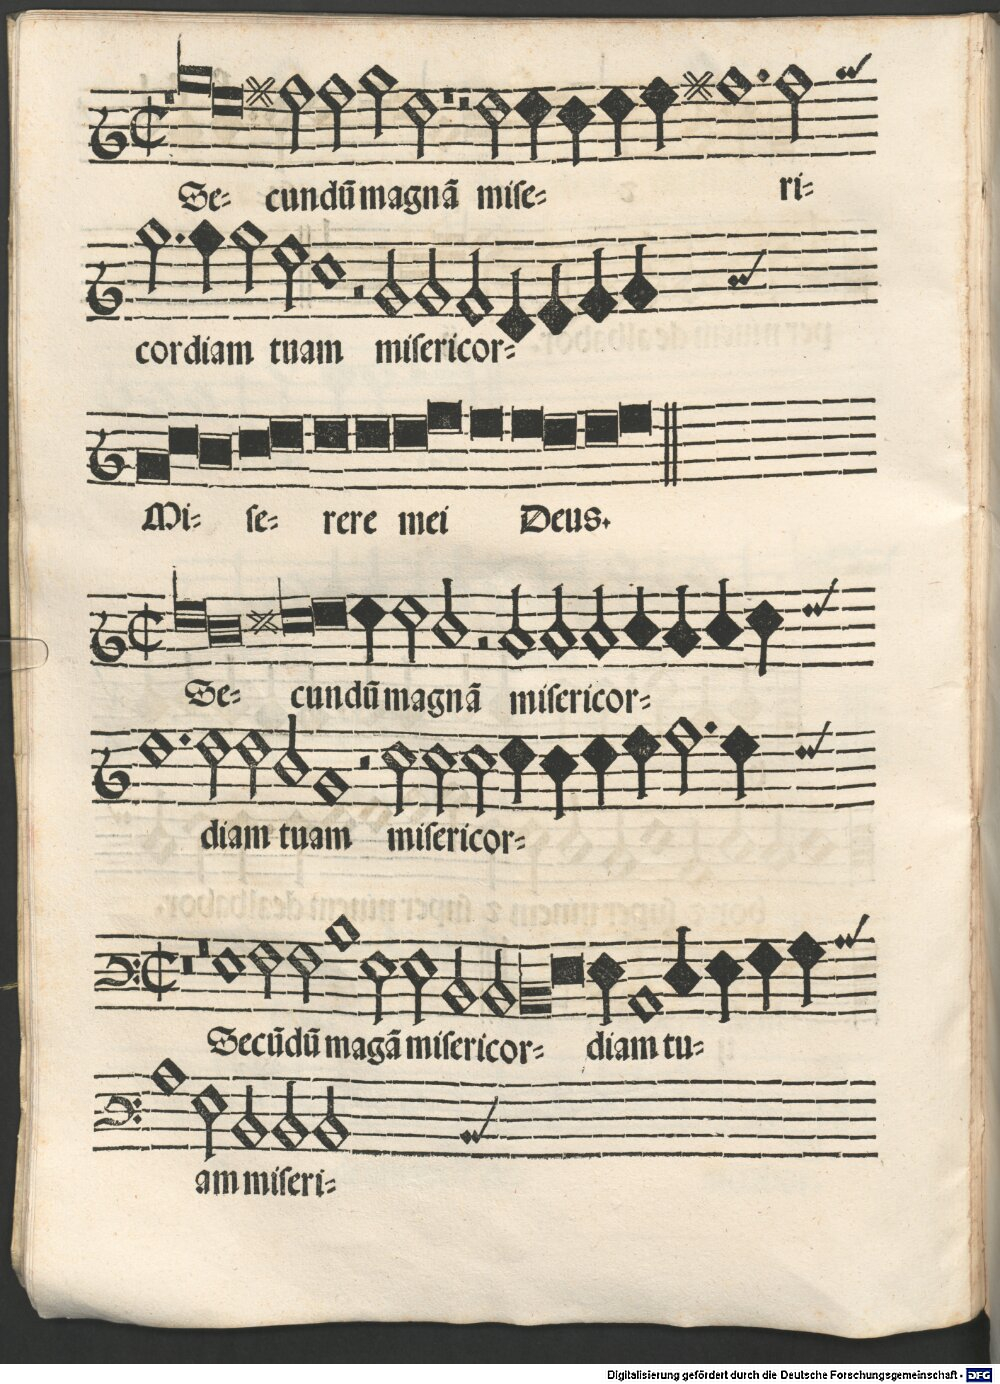 Se- cundū magnā mise- ri-
cordiam tuam misericor-
Mi- se- rere mei Deus.
Se- cundū magnā misericor-
diam tuam misericor-
Secūdū magā misericor- diam tu-
am miseri-
Digitalisierung gefördert durch die Deutsche Forschungsgemeinschaft - DFG